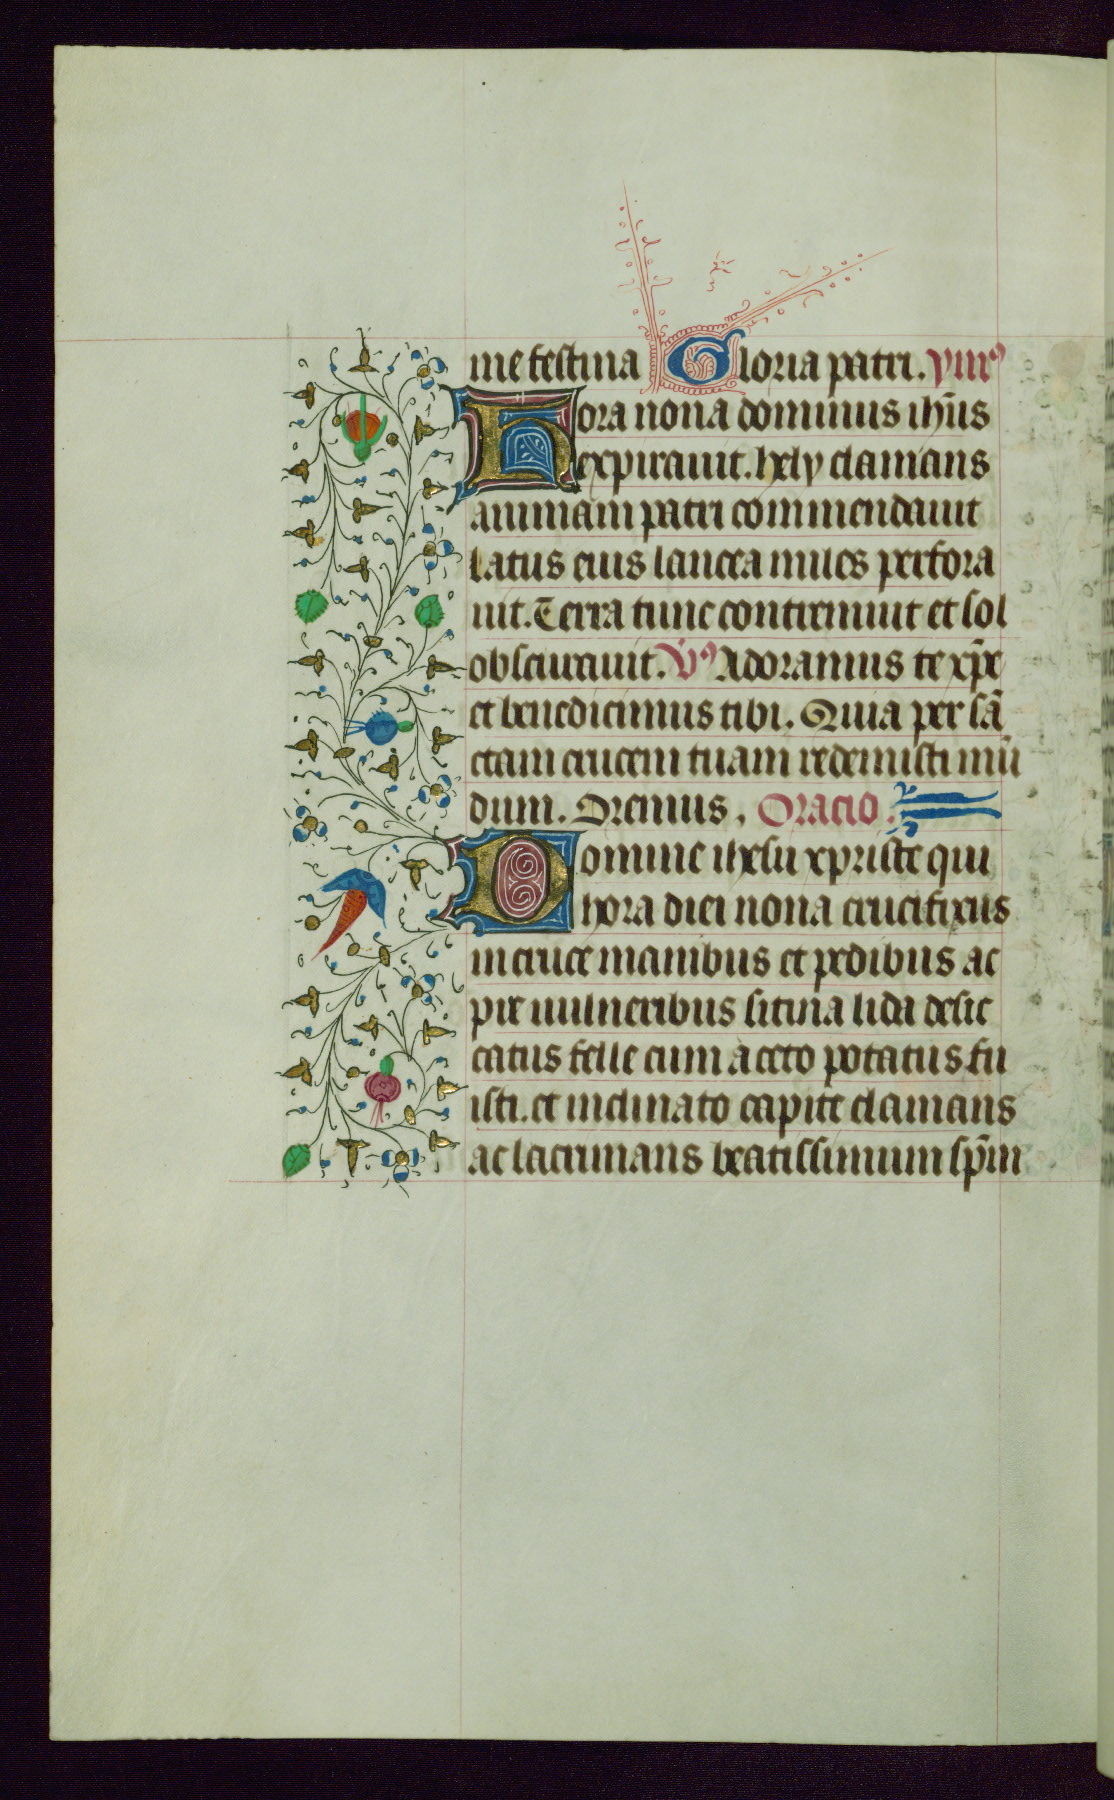 me festina Gloria patri. ymꝰ
Hora nona dominus ih̄us
expirauit. hely clamans
animam patri commendauit
latus eius lancea miles perfora
uit. Terra tunc contremuit et sol
obscurauit. Vꝰ Adoramus te xp̄e
et benedicimus tibi. Quia per sā
ctam crucem tuam redemisti mū
dum. Oremus. Oracio.
Domine ihesu xpriste qui
hora diei nona crucifixus
in cruce manibus et pedibus ac
pie uulneribus sitina lida desic
catus felle cum aceto potatus fu
isti. et inclinato capite clamans
ac lacrimans beatissimum sp̄m